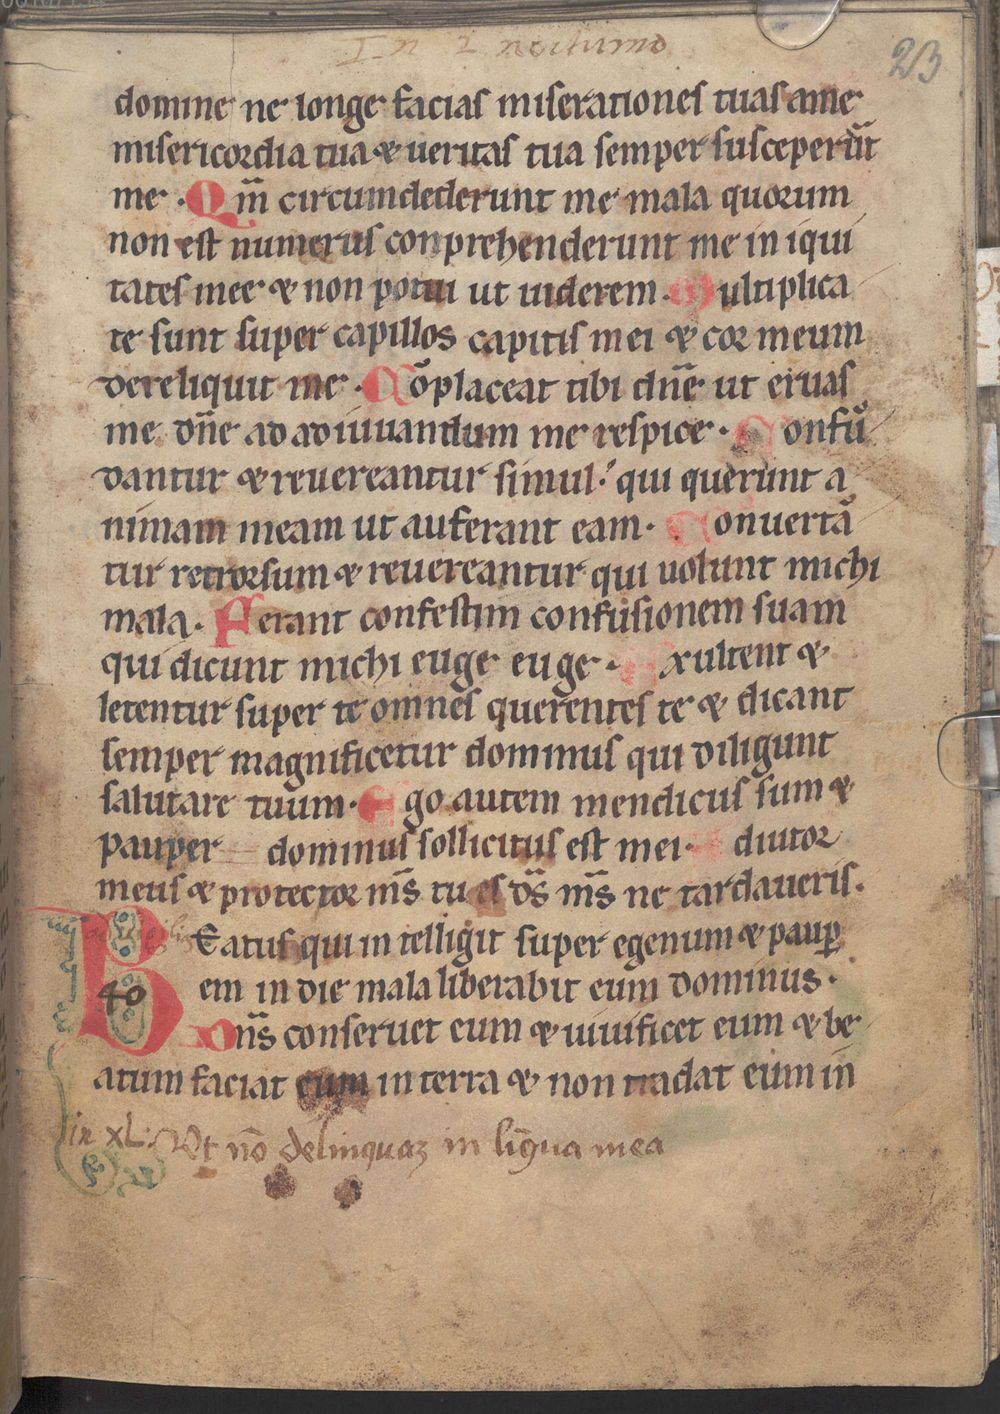 In 2 nocturno
23
domine ne longe facias miserationes tuas a me
misericordia tua & ueritas tua semper susceperūt
me. Qm̄ circumdederunt me mala quorum
non est numerus conprehenderunt me in iqui
tates mee & non potui ut uiderem. Multiplica
te sunt super capillos capitis mei & cor meum
dereliquit me. Cōplaceat tibi dn̄e ut eruas
me dn̄e ad adiuuandum me respice. Confū
dantur & reuereantur simul qui querunt a
nimam meam ut auferant eam. Conuertā
tur retrorsum & reuereantur qui uolunt michi
mala. Ferant confestim confusionem suam
qui dicunt michi euge euge. Exultent &
letentur super te omnes querentes te & dicant
semper magnificetur dominus qui diligunt
salutare tuum. Ego autem mendicus sum &
pauper dominus sollicitus est mei. Adiutor
meus & protector ms̄ tu es ds̄ ms̄ ne tardaueris.
Beatus qui intelligit super egenum & paup
em in die mala liberabit eum dominus.
40
Dn̄s conseruet eum & uiuificet eum & be
atum faciat eum in terra & non tradat eum in
in XL: Vt nō delinquaz in lingua mea